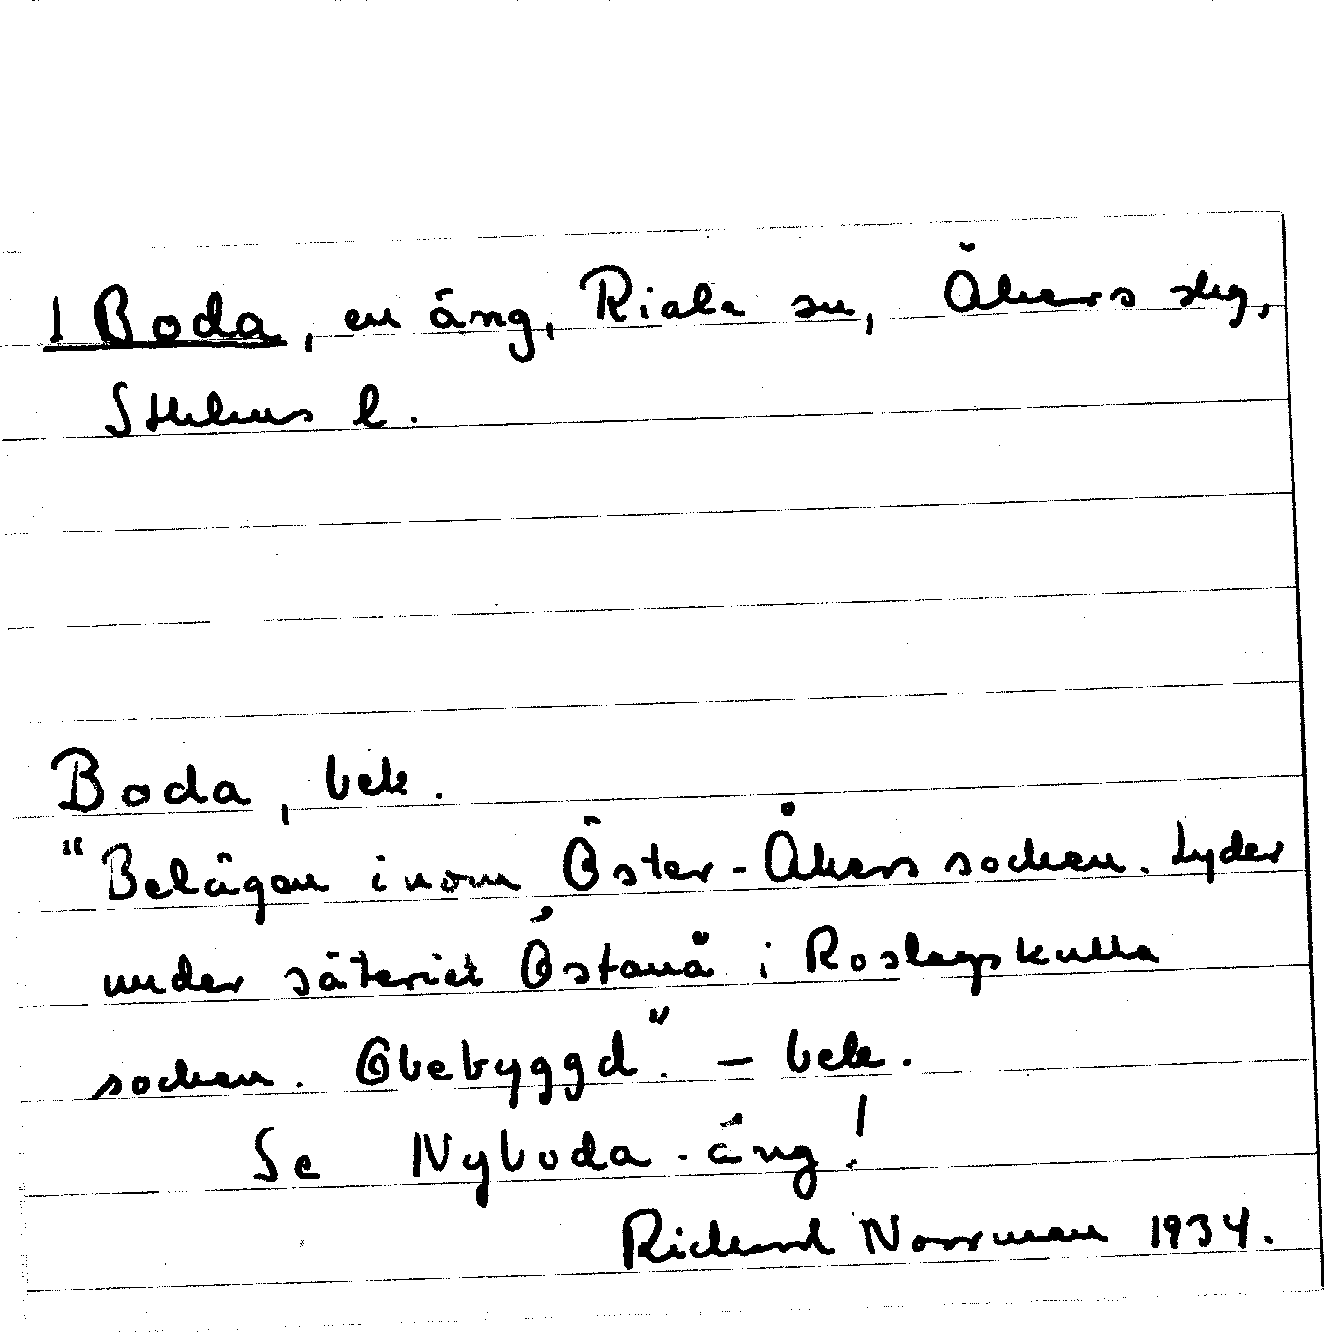 1 Boda, en äng, Riala sn, Åkers slg,
Sthlms l.
Boda, bek.
"Belägen inom Öster-Åkers socken. Lyder
under säteriet Östanå i Roslagskulla
socken. Obebyggd". - bek.
Se Nyboda-äng!
Richard Norrman 1934.